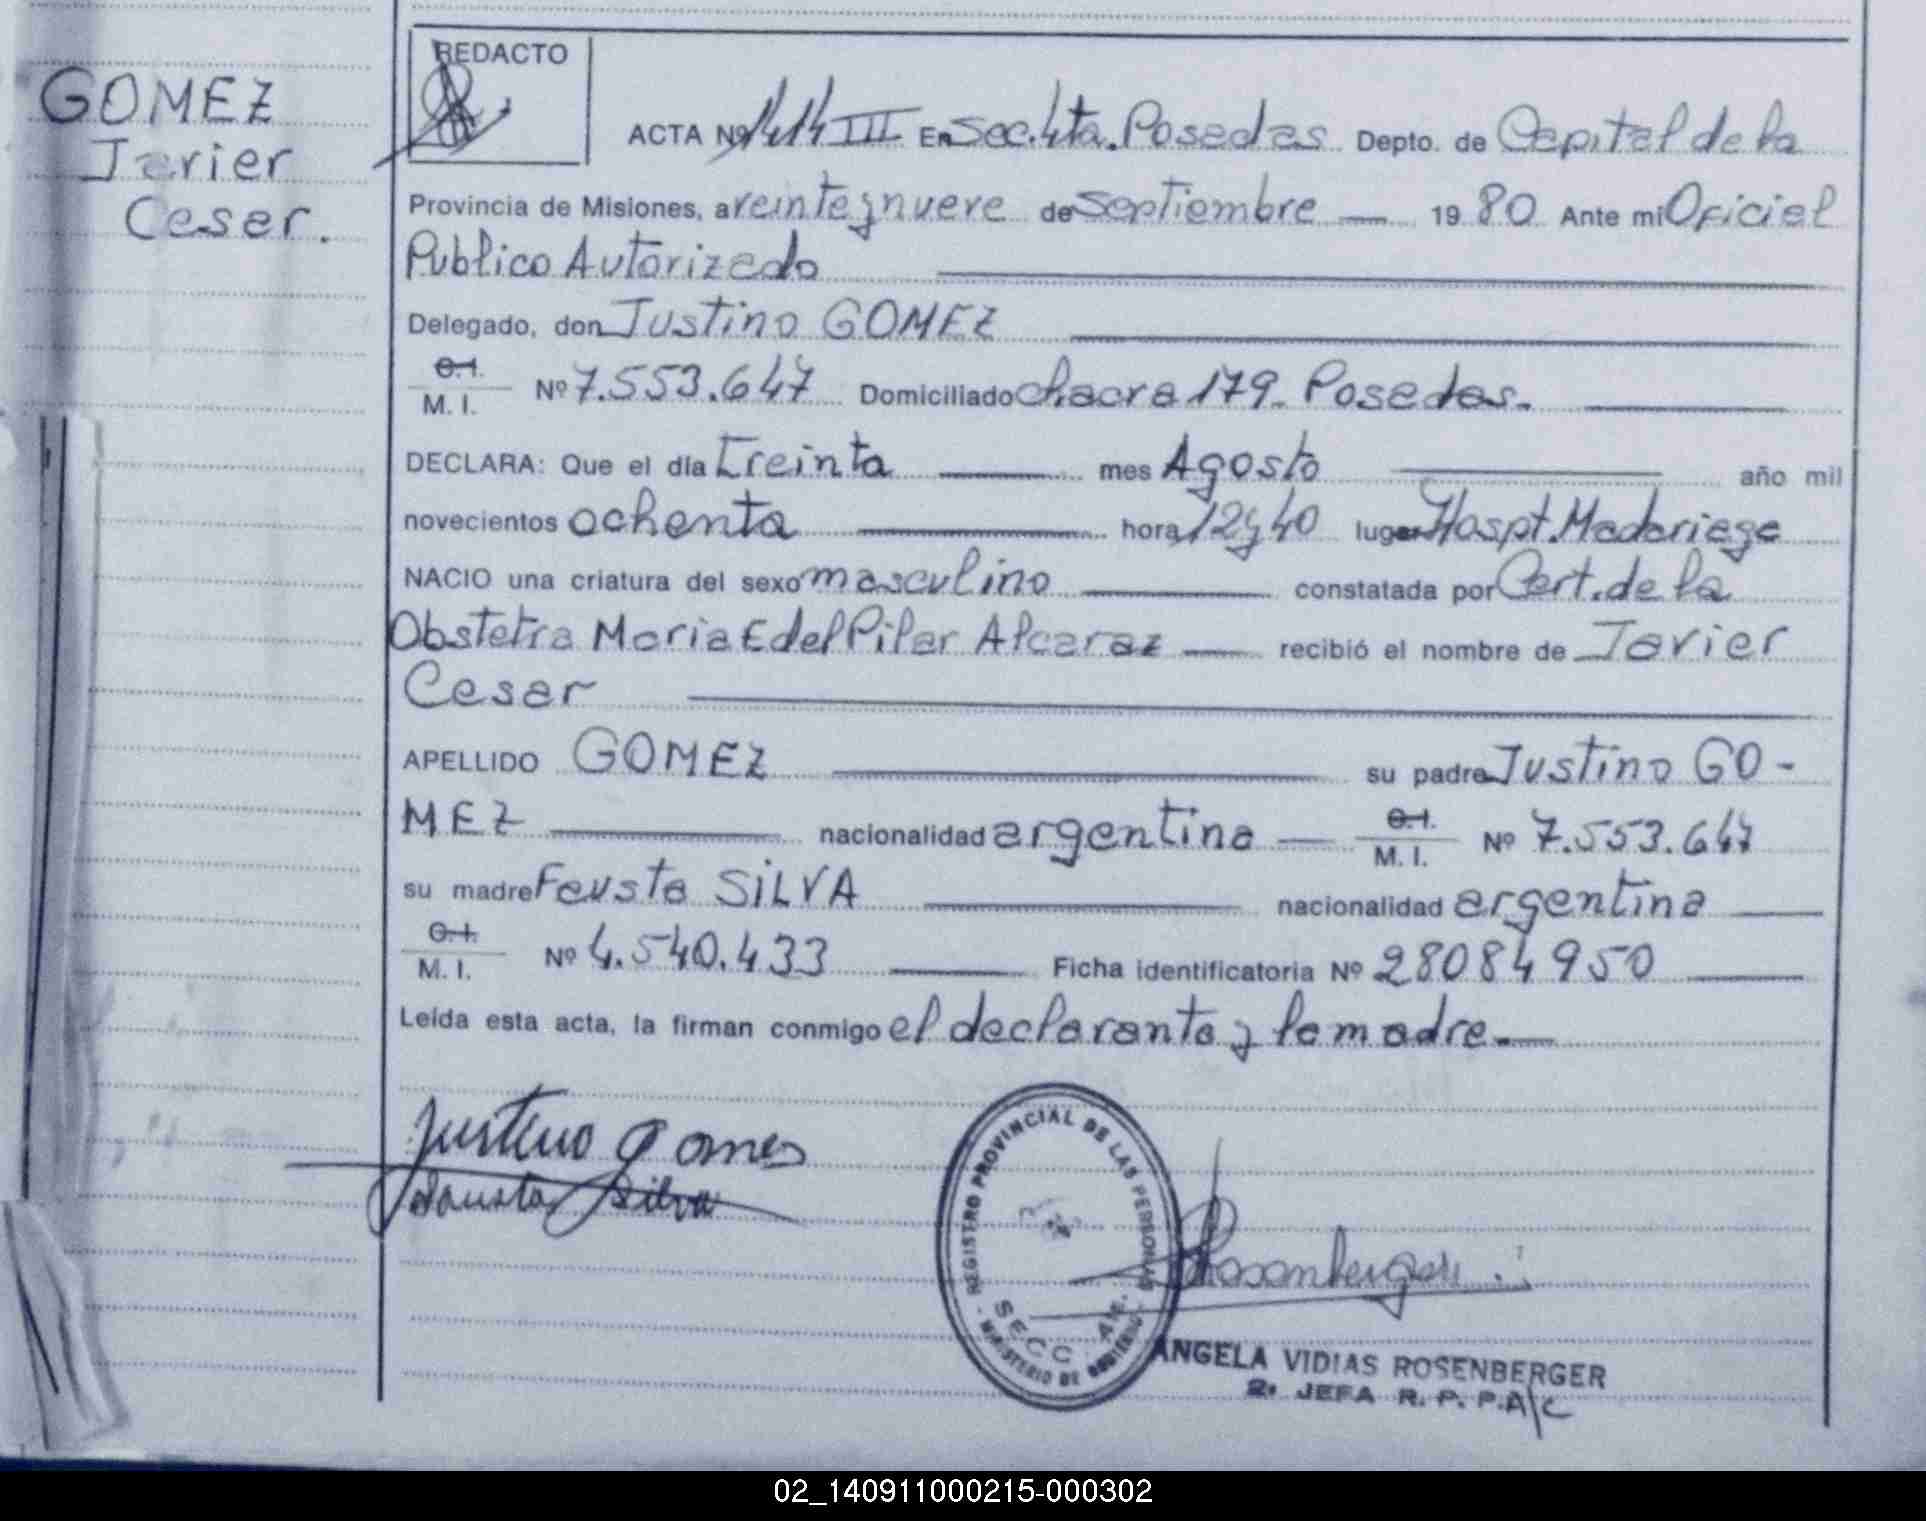 GOMEZ
Javier
Cesar.
REDACTO
ACTA Nº 1414 III En Sec. 4ta. Posadas Depto. de Capital de la
Provincia de Misiones, a veinte y nueve de Septiembre 1980 Ante mi Oficial
Publico Autorizado
Delegado, don Justino GOMEZ
C.I.
M. I. Nº 7.553.647 Domiciliado chacra 179- Posadas.
DECLARA: Que el día treinta mes Agosto año mil
novecientos ochenta hora 12 y 40 lugar Hospt. Madariaga
NACIO una criatura del sexo masculino constatada por Cert. de la
Obstetra Maria E del Pilar Alcaraz recibió el nombre de Javier
Cesar
APELLIDO GOMEZ su padre Justino GO-
MEZ nacionalidad argentina C.I. M. I. Nº 7.553.647
su madre Fausta SILVA nacionalidad argentina
C.I.
M. I. Nº 4.540.433 Ficha identificatoria Nº 28084950
Leída esta acta, la firman conmigo el declarante y la madre.
Justino Gomes
Fausta Silva
REGISTRO PROVINCIAL DE LAS PERSONAS
SECC 4ta.
MINISTERIO DE GOBIERNO
Rosenberger
ANGELA VIDIAS ROSENBERGER
2ª JEFA R. P. P. A/C
02_140911000215-000302